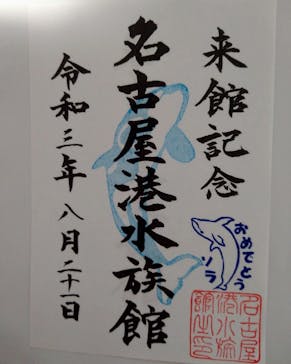 来館記念
名古屋港水族館
令和三年八月二十一日
おめでとう
ソラ
名古屋
港水族
館之印